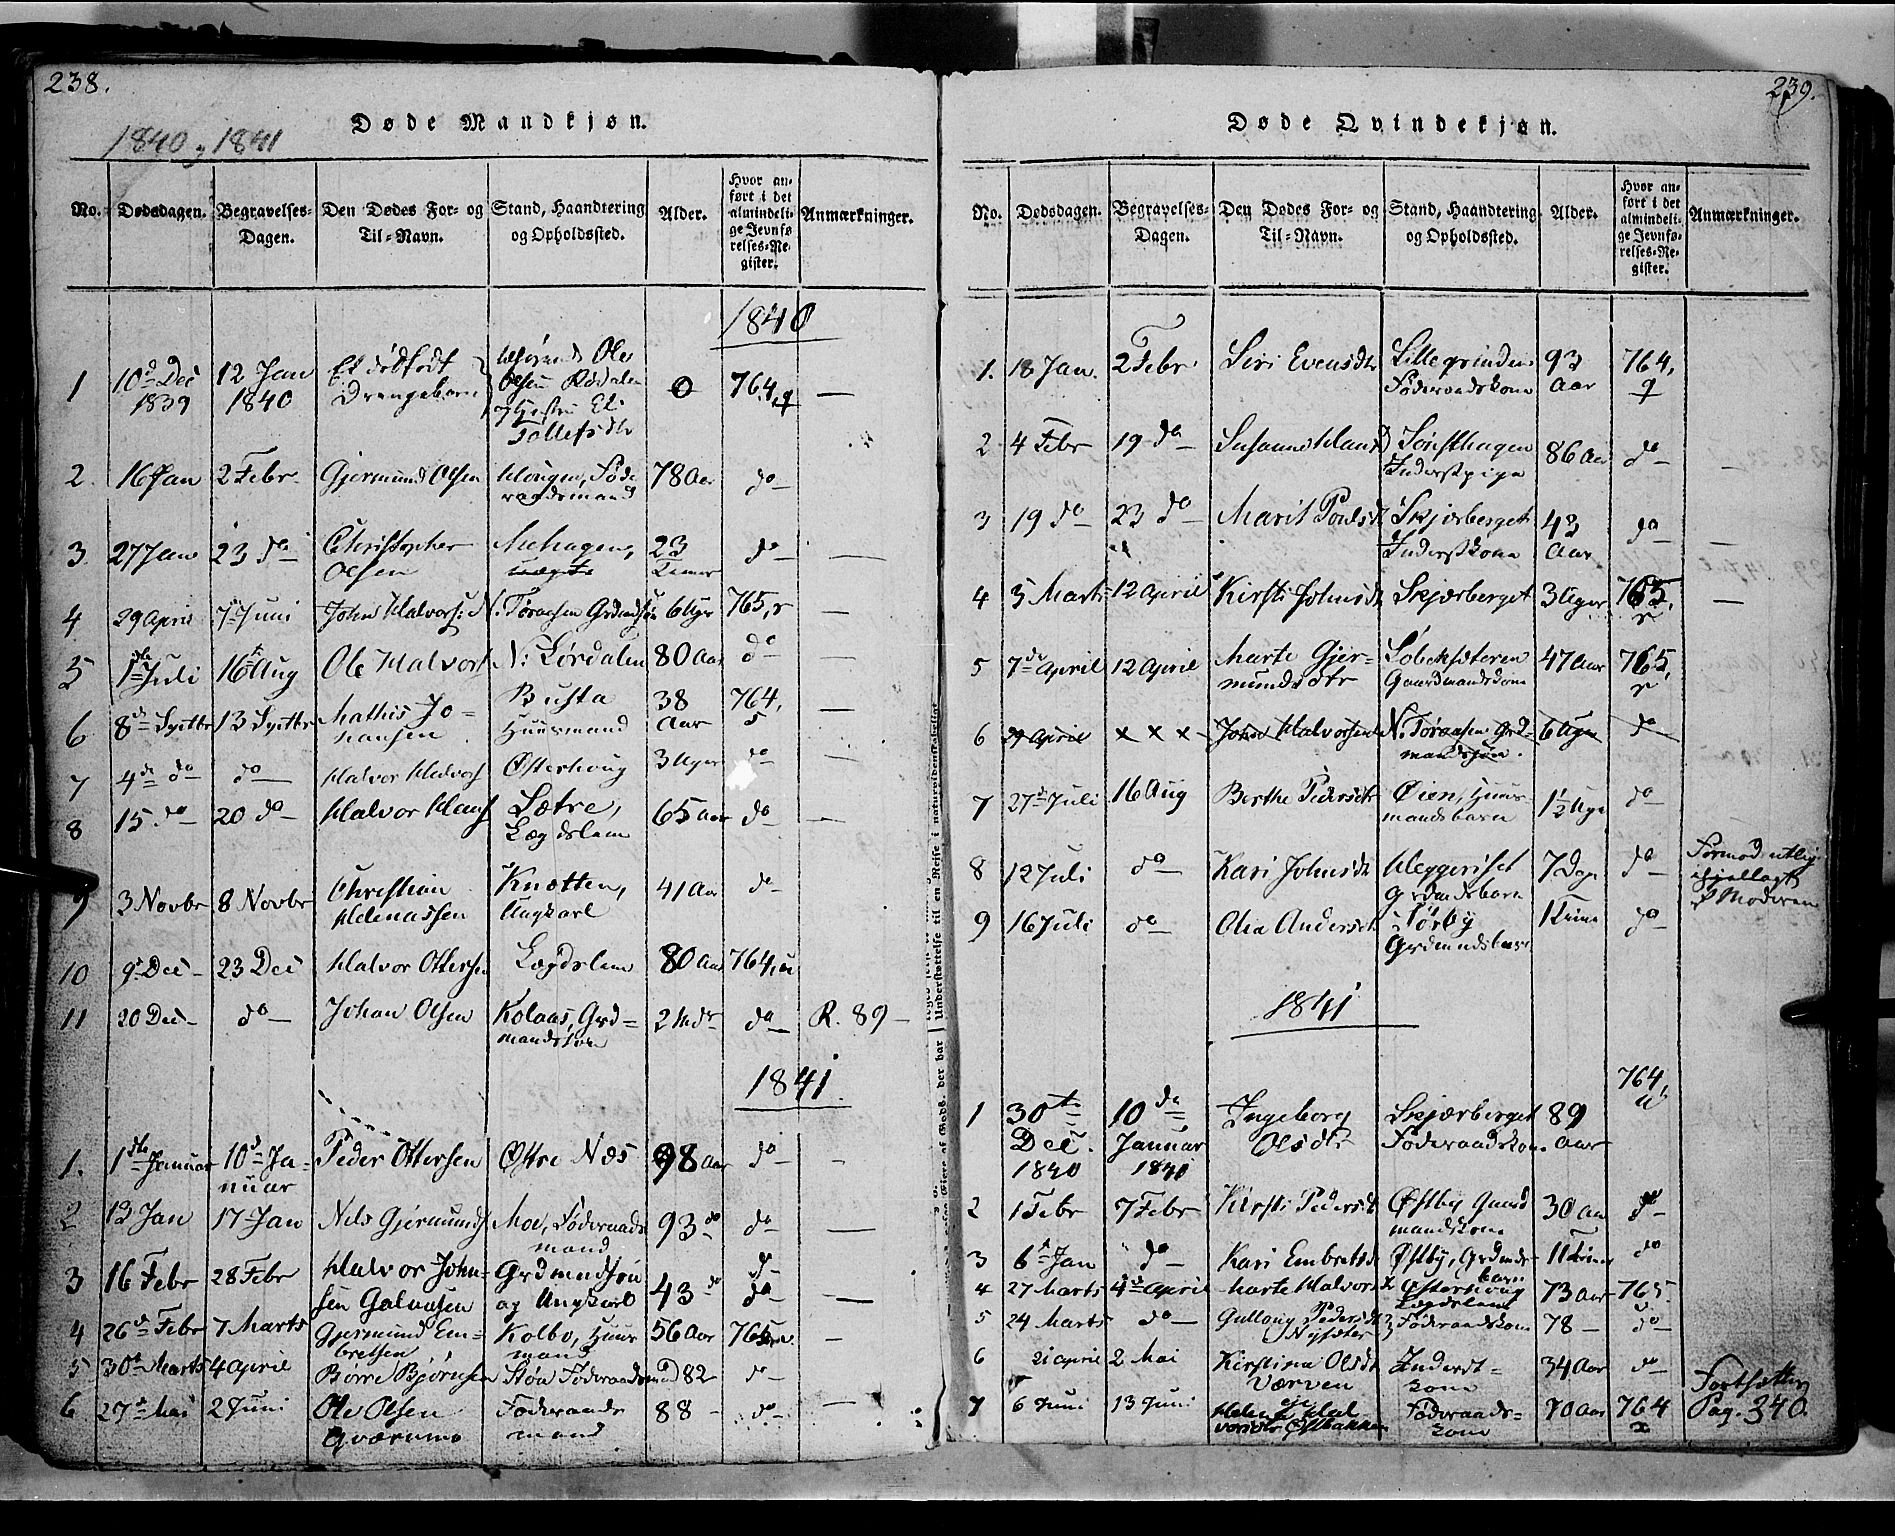 238.
1840 og 1841
Døde Mandkjøn.
No. Dødsdagen. Begravelses-Dagen. Den Dødes For- og Til-Navn. Stand, Haandtering og Opholdssted. Alder. Hvor anført i det almindelige Jevnførelses-Register. Anmærkninger.
1840
1 10d Dec 1839 12 Jan 1840 Et dødfødt Drengebarn Ole Olsen Eli Tollefsdtr 0 764, q —
2. 16 Jan 2 Febr. Gjermund Olsen Haugen, Føderaadsmand 78 Aar do —
3. 27 Jan 23 do — Christopher Olsen 23 Timer do — —
4 29 April 7 Juni John Halvors: N. Toraasen Grdmdsøn 6 Uger 765, r —
5 1ste Juli 16 Aug Ole Halvors N: Lørdalen 80 Aar do — —
6 8de Septbr 13 Septbr Mathis Johansen Busta Huusmand 38 Aar 764, s —
7 4de do — do — Halvor Halvors Østerhoug 3 Uger do —
8 15 do — 20 do — Halvor Hans Sætre, Lægdslem 65 Aar do — —
9 3 Novbr 8 Novbr Christian Helenassen Knotten, Ungkarl 41 Aar do —
10 9d Dec — 23 Dec Halvor Ottersen Lægdslem 80 Aar 764, u
11 20 Dec — do — Johan Olsen Kolaas, Grdmandssøn 2 Mdr do — R. 89 —
1841.
1. 1ste Januar 10d Januar Peder Ottersen Øttre Næs 98 Aar do — —
2 13 Jan 17 Jan Nils Gjermunds Moe, Føderaadsmand 93 do do — —
3 16 Febr 28 Febr Halvor Johnsen Galaasen Grdmandsøn og Ungkarl 43 do do — —
4 26d Febr 7 Marts Gjermund Embretsen Kolbo, Huusmand 56 Aar 765 —
5 30d Marts 4 April Børre Bjørnsen Støa Føderaadsmand 82 do — —
6 27d Mai 2 Juni Ole Olsen Qværnmo Føderaadsmand 88 — do — —
239.
Døde Qvindekjøn.
No. Dødsdagen. Begravelses-Dagen. Den Dødes For- og Til-Navn. Stand, Haandtering og Opholdssted. Alder. Hvor anført i det almindelige Jevnførelses-Register. Anmærkninger.
1. 18 Jan. 2 Febr Siri Evensdtr Lillegrinden Føderaadskone 93 Aar 764, q
2 4 Febr 19 do — Susanne Hansd Inderstpige 86 Aar do — —
3 19 do — 23 do — Marit Poulsd Skjærberget Inderstkone 43 Aar do — —
4 5 Marts 12 April Kirsti Johnsdtr Skjærberget 3 Uger 765, r —
5 7de April 12 April Marte Gjermundsdtr Gaardmandskone 47 Aar 765, r
6 29 April x x x — John Halvorsen N: Toraasen Grdmandssøn. 6 Uger do —
7 27d Juli 16 Aug Berthe Pedersdtr Øien, Huusmandsbarn 1½ Uge do —
8 12 Juli do — Kari Johnsdtr Heggeriset Grdmdsbarn 7 Dage do — Formodentlig ihjellagt af Moderen
9 16 Juli do — Olia Andersdtr Tørby Grdmandsbarn 1 Time do —
1841
1 30te Dec. 1840 10de Januar 1841 Ingeborg Olsdtr Skjærberget Føderaadskone 89 Aar 764, u
2 1 Febr 7 Febr Kirsti Pedersdt Østby Gaardmandskone 30 Aar do —
3 6d Jan do — Kari Embretsdt Østby, Grdmdsbarn 11 Timer do
4 27 Marts 4d April Marte Halvorsd Østerhoug Lægdslem 73 Aar 765.
5 24 Marts do — Gulloug Pedersdtr Nysæter Føderaadskone 78 — do —
6 21 April 2 Mai Kirstina Olsdt Værven Inderstkone 34 Aar do —
7 6 Juni 13 Juni Helene Halvorsdtr Østbakken Føderaadskone 70 Aar 764 x Fortsættes Pag. 340.